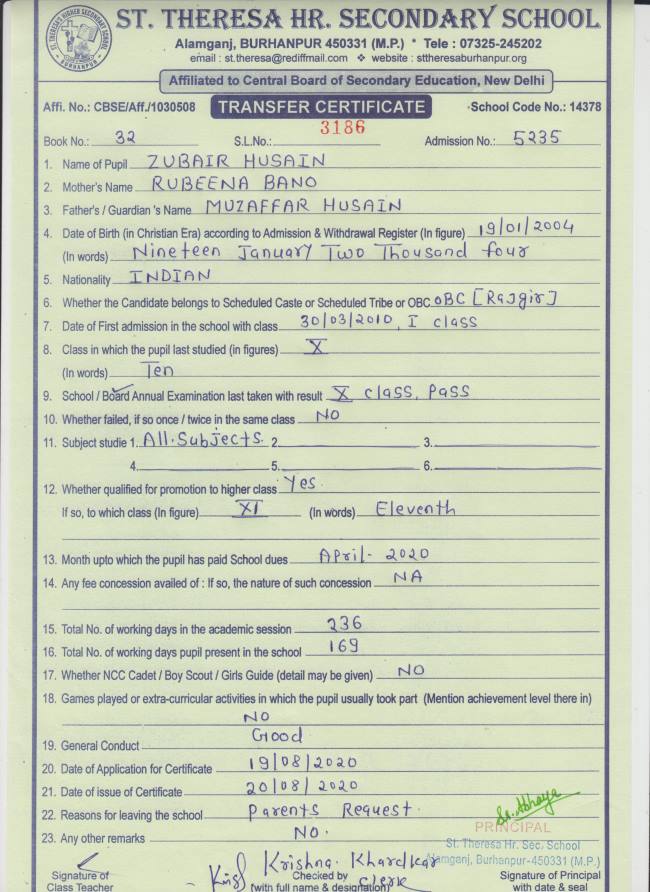 ST. THERESA HR. SECONDARY SCHOOL
Alamganj, BURHANPUR 450331 (M.P.) * Tele : 07325-245202
email : st.theresa@rediffmail.com ❖ website : sttheresaburhanpur.org
Affiliated to Central Board of Secondary Education, New Delhi
Affi. No.: CBSE/Aff./1030508 TRANSFER CERTIFICATE School Code No.: 14378
Book No.: 32 S.L.No.: 3186 Admission No.: 5235
1. Name of Pupil ZUBAIR HUSAIN
2. Mother's Name RUBEENA BANO
3. Father's / Guardian 's Name MUZAFFAR HUSAIN
4. Date of Birth (in Christian Era) according to Admission & Withdrawal Register (In figure) 19/01/2004
(In words) Nineteen January Two Thousand four
5. Nationality INDIAN
6. Whether the Candidate belongs to Scheduled Caste or Scheduled Tribe or OBC OBC [Rajgir]
7. Date of First admission in the school with class 30/03/2010, I class
8. Class in which the pupil last studied (in figures) X
(In words) Ten
9. School / Board Annual Examination last taken with result X class, Pass
10. Whether failed, if so once / twice in the same class NO
11. Subject studie 1. All.Subjects 2. 3.
4. 5. 6.
12. Whether qualified for promotion to higher class Yes
If so, to which class (In figure) XI (In words) Eleventh
13. Month upto which the pupil has paid School dues April- 2020
14. Any fee concession availed of : If so, the nature of such concession NA
15. Total No. of working days in the academic session 236
16. Total No. of working days pupil present in the school 169
17. Whether NCC Cadet / Boy Scout / Girls Guide (detail may be given) NO
18. Games played or extra-curricular activities in which the pupil usually took part (Mention achievement level there in)
NO
19. General Conduct Good
20. Date of Application for Certificate 19/08/2020
21. Date of issue of Certificate 20/08/2020
22. Reasons for leaving the school Parents Request.
23. Any other remarks NO.
Sr. Abhaya
PRINCIPAL
St. Theresa Hr. Sec. School
Alamganj, Burhanpur-450331 (M.P.)
Krishna. Khardkar
Signature of Checked by Clerk Signature of Principal
Class Teacher (with full name & designation) with date & seal